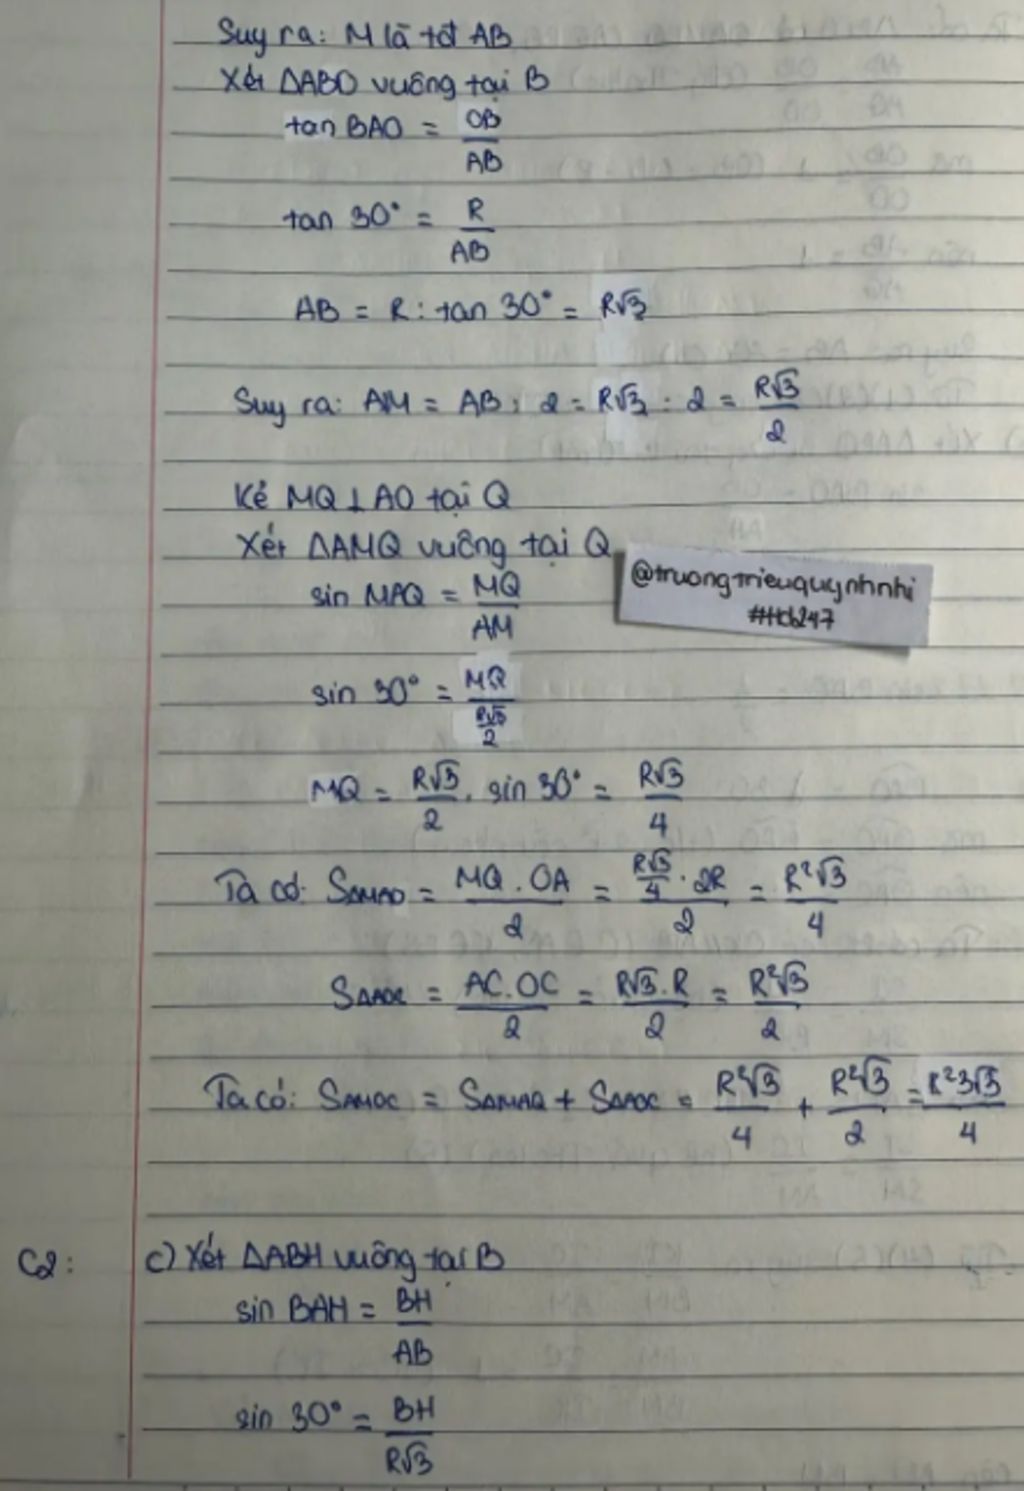 Suy ra: M là tđ AB
Xét ΔABO vuông tại B
tan BAO = OB/AB
tan 30° = R/AB
AB = R : tan 30° = R√3
Suy ra: AM = AB : 2 = R√3 : 2 = R√3/2
Kẻ MQ ⊥ AO tại Q
Xét ΔAMQ vuông tại Q
@truongtrieuquynhnhi
#Hcb247
sin MAQ = MQ/AM
sin 30° = MQ/(R√3/2)
MQ = R√3/2 . sin 30° = R√3/4
Ta có: SΔMAO = MQ.OA/2 = (R√3/4 . 2R)/2 = R²√3/4
SΔAOC = AC.OC/2 = R√3.R/2 = R²√3/2
Ta có: SAMOC = SΔMAO + SΔAOC = R²√3/4 + R²√3/2 = R²3√3/4
C2: c) Xét ΔABH vuông tại B
sin BAH = BH/AB
sin 30° = BH/R√3